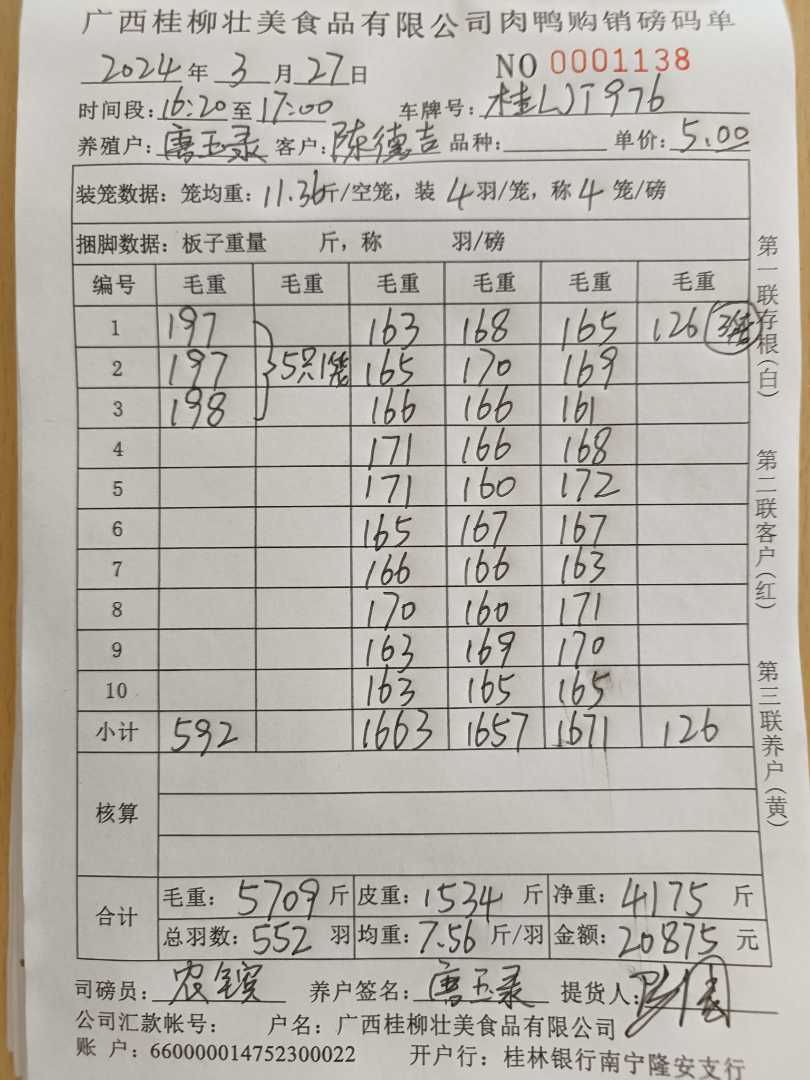 广西桂柳壮美食品有限公司肉鸭购销磅码单
2024年 3月 27日 NO 0001138
时间段: 16:20至17:00 车牌号:
养殖户: 唐玉录 客户: 陈德吉 品种: 单价: 5.00
装笼数据: 笼均重: 11.36斤/空笼, 装 4 羽/笼, 称 4 笼/磅
捆脚数据: 板子重量 斤, 称 羽/磅
编号 毛重 毛重 毛重 毛重 毛重 毛重
1 197 163 168 165 126 3笼
2 197 5只1笼 165 170 169
3 198 166 166 161
4 171 166 168
5 171 160 172
6 165 167 167
7 166 166 163
8 170 160 171
9 163 169 170
10 163 165 165
小计 592 1663 1657 1671 126
核算
合计 毛重: 5709 斤 皮重: 1534 斤 净重: 4175 斤
总羽数: 552 羽 均重: 7.56 斤/羽 金额: 20875 元
司磅员: 养户签名: 唐玉录 提货人:
公司汇款帐号: 户名: 广西桂柳壮美食品有限公司
账 户: 660000014752300022 开户行: 桂林银行南宁隆安支行
第一联存根(白)
第二联客户(红)
第三联养户(黄)